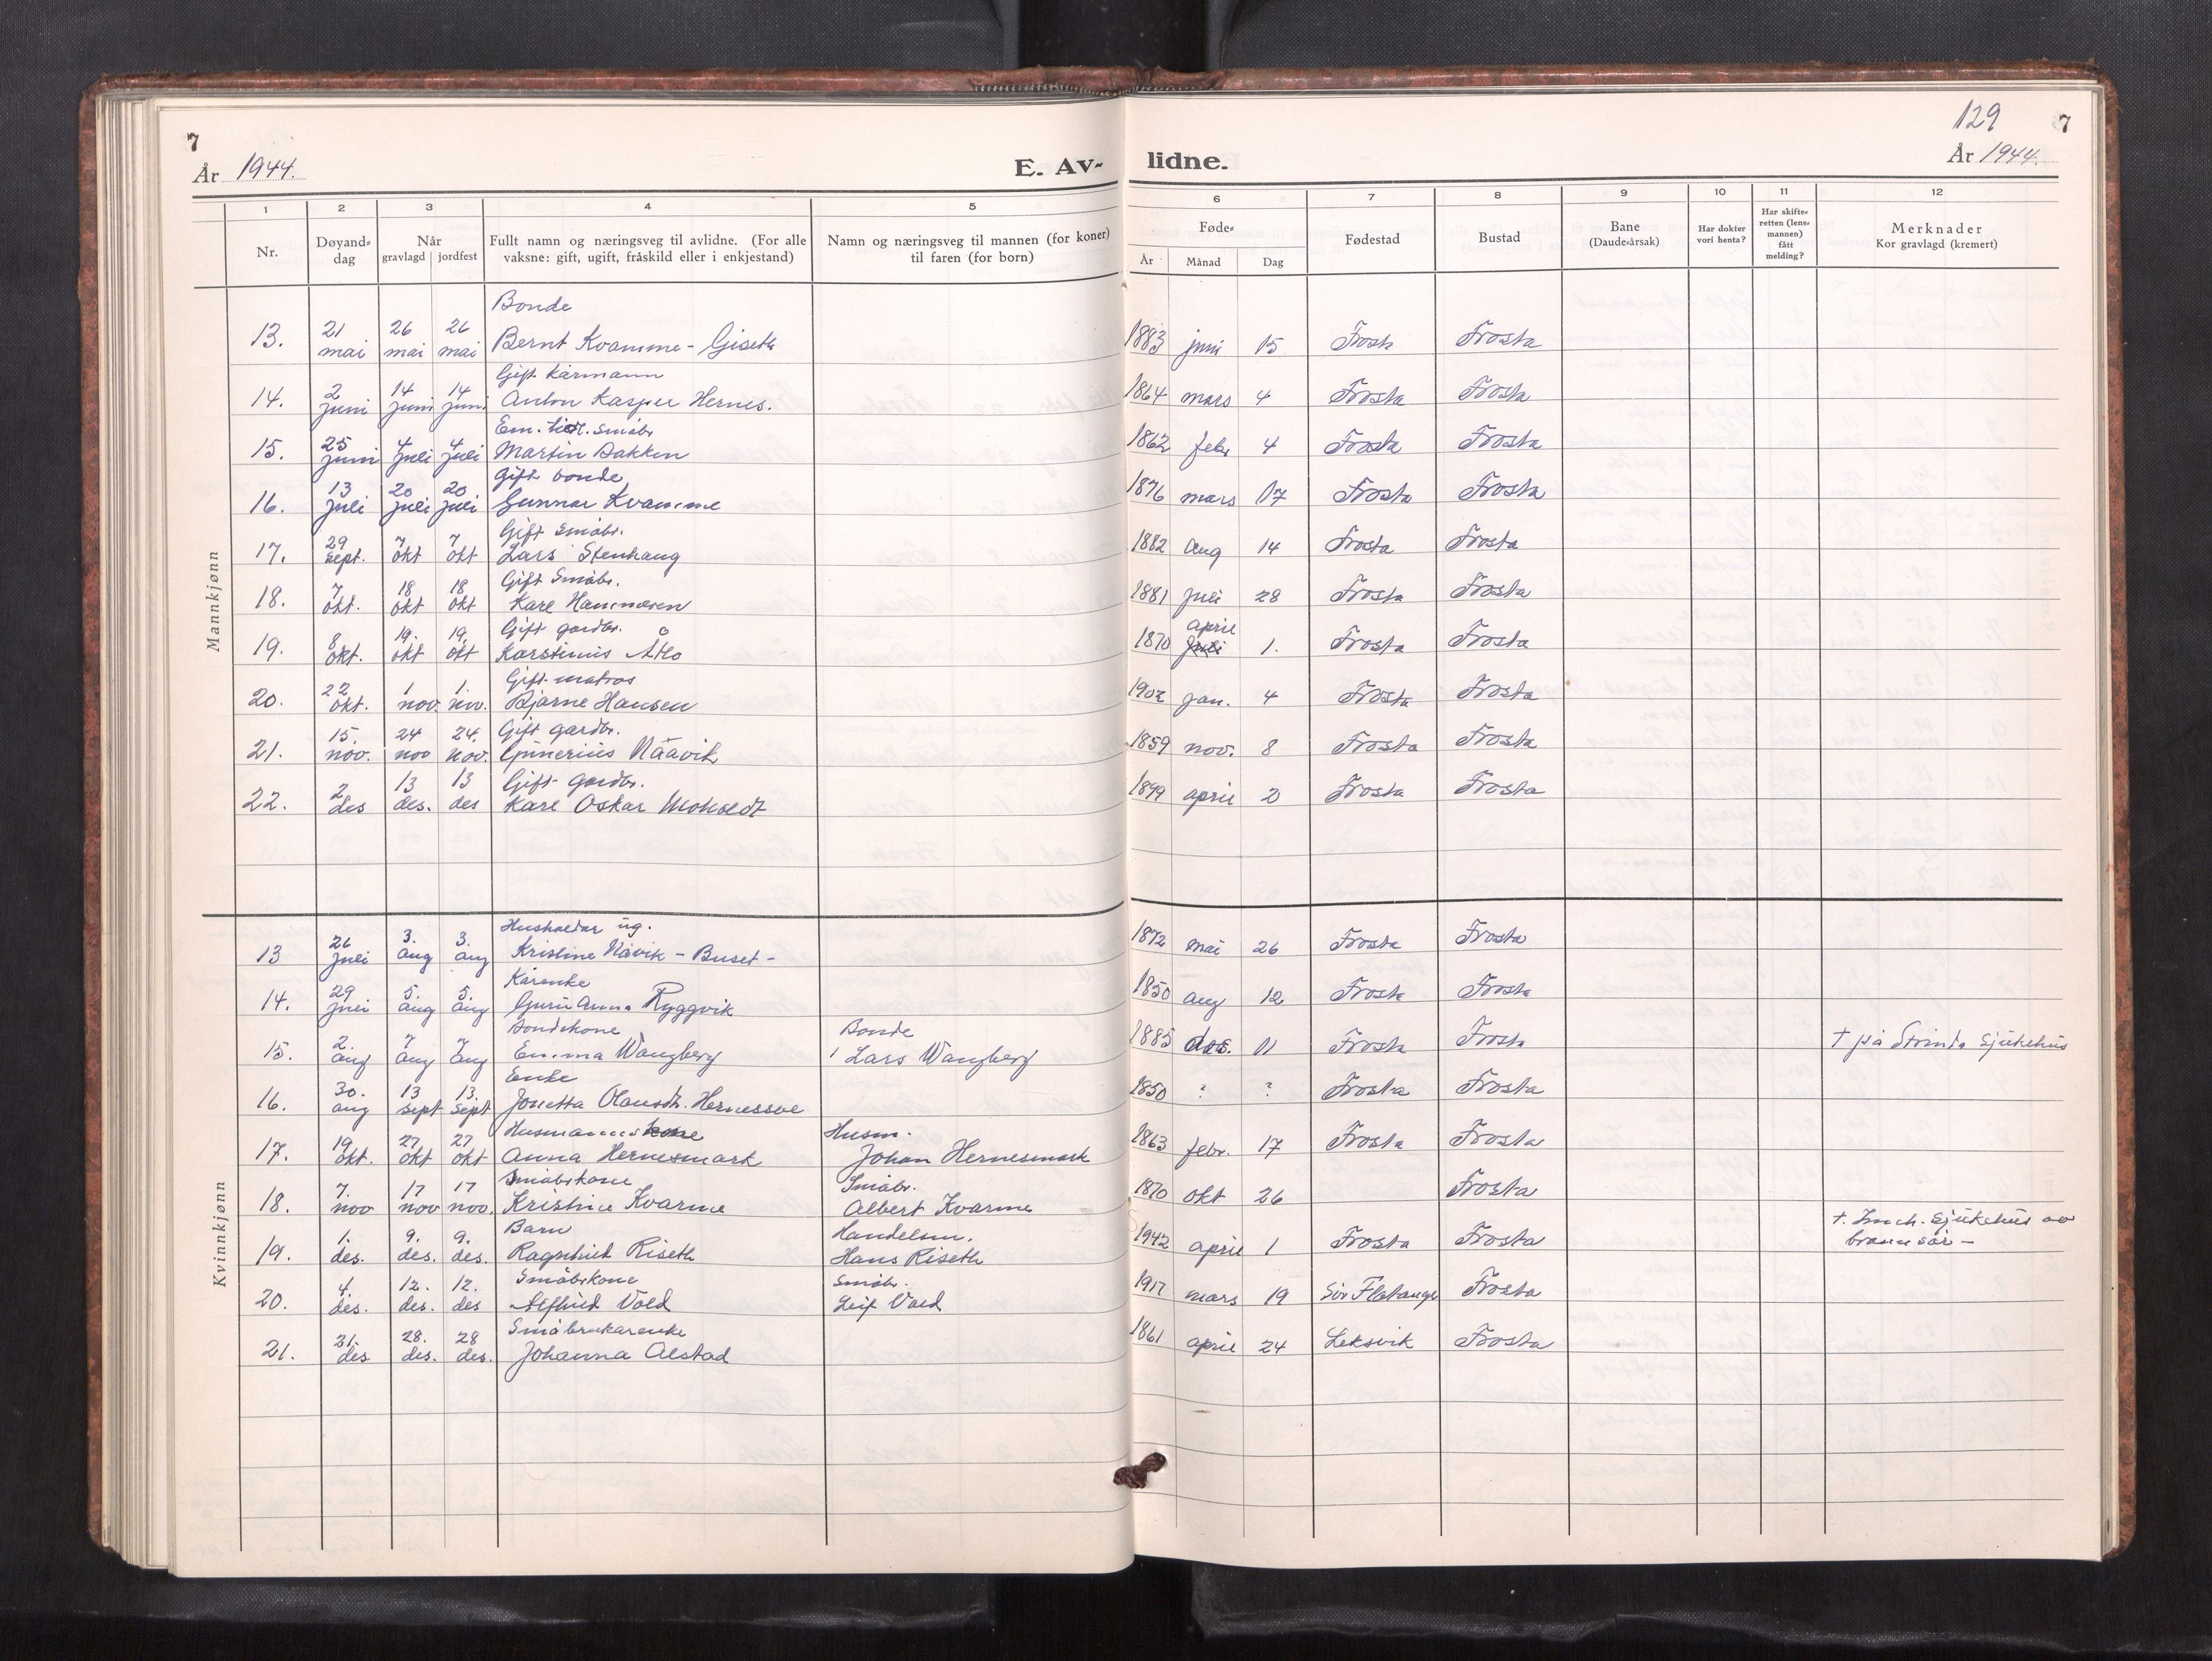 7
År 1944.
E. Av-
lidne.
129
7
År 1944.
1 2 3 4 5 6 7 8 9 10 11 12
Nr.
Døyand-
dag
Når
gravlagd jordfest
Fullt namn og næringsveg til avlidne. (For alle
vaksne: gift, ugift, fråskild eller i enkjestand)
Namn og næringsveg til mannen (for koner)
til faren (for born)
Føde-
År Månad Dag
Fødestad
Bustad
Bane
(Daude-årsak)
Har dokter
vori henta?
Har skifte-
retten (lens-
mannen)
fått
melding?
Merknader
Kor gravlagd (kremert)
Mannkjønn
Bonde
13. 21 mai 26 mai 26 mai Bernt Kvamme - Giseth 1883 juni 15 Frosta Frosta
Gift kårmann
14. 2 juni 14 juni 14 juni Anton Kasper Hernes. 1864 mars 4 Frosta Frosta
Em. småbr
15. 25 juni 4 juli 4 juli Martin Bakken 1862 febr 4 Frosta Frosta
Gift bonde
16. 13 juli 20 juli 20 juli Gunnar Kvamme 1876 mars 17 Frosta Frosta
Gift Småbr.
17. 29 sept. 7 okt 7 okt Lars Stenhaug 1882 aug 14 Frosta Frosta
Gift Småbr.
18. 7 okt. 18 okt 18 okt Karl Hammeren 1881 juli 28 Frosta Frosta
Gift gardbr.
19. 8 okt. 19. okt 19. okt Karstinus 1870 april juli 1. Frosta Frosta
Gift matros
20. 22 okt. 1 nov. 1. nov. Bjarne Hansen 1902 jan. 4 Frosta Frosta
Gift gardbr.
21. 15. nov. 24 nov 24. nov. Gunerius Nåavik 1859 nov. 8 Frosta Frosta
Gift gardbr.
22. 2 des 13 des. 13 des Karl Oskar Moholdt 1899 april 2 Frosta Frosta
Kvinnkjønn
Hushaldar ug.
13 26 juli 3. aug 3. aug Kristine Nåvik - Buset - 1872 mai 26 Frosta Frosta
Kårenke
14. 29 juli 5 aug 5 aug Guru Anna Ryggvik 1850 aug 12 Frosta Frosta
Bondekone Bonde
15. 2. aug 7 aug 7 aug Emma Wangberg Lars Wangberg 1885 des. 11 Frosta Frosta † på Strinda Sjukehus
Enke
16. 30. aug 13 sept 13. sept Jonetta Olausdtr. Hernessve 1850 ? ? Frosta Frosta
Husmannskone Husm.
17. 19 okt. 27 okt 27 okt Anna Hernesmark Johan Hernesmark 1863 febr. 17 Frosta Frosta
Småbrkone Småbr.
18. 7. nov 17 nov 17 nov. Kristine Kvarme Albert Kvarme 1870 okt 26 Frosta
Barn Handelsm.
19. 1. des. 9. des. 9. des. Ragnhild Riseth Hans Riseth 1942 april 1 Frosta Frosta † Innh. sjukehus av
brannsår -
Småbrkone Småbr.
20. 4. des. 12. des. 12. des Alfhild Vold Leif Vold 1917 mars 19 Sør Flatanger Frosta
Småbrukarenke
21. 21. des 28. des. 28 des. Johanna Alstad 1861 april 24 Leksvik Frosta